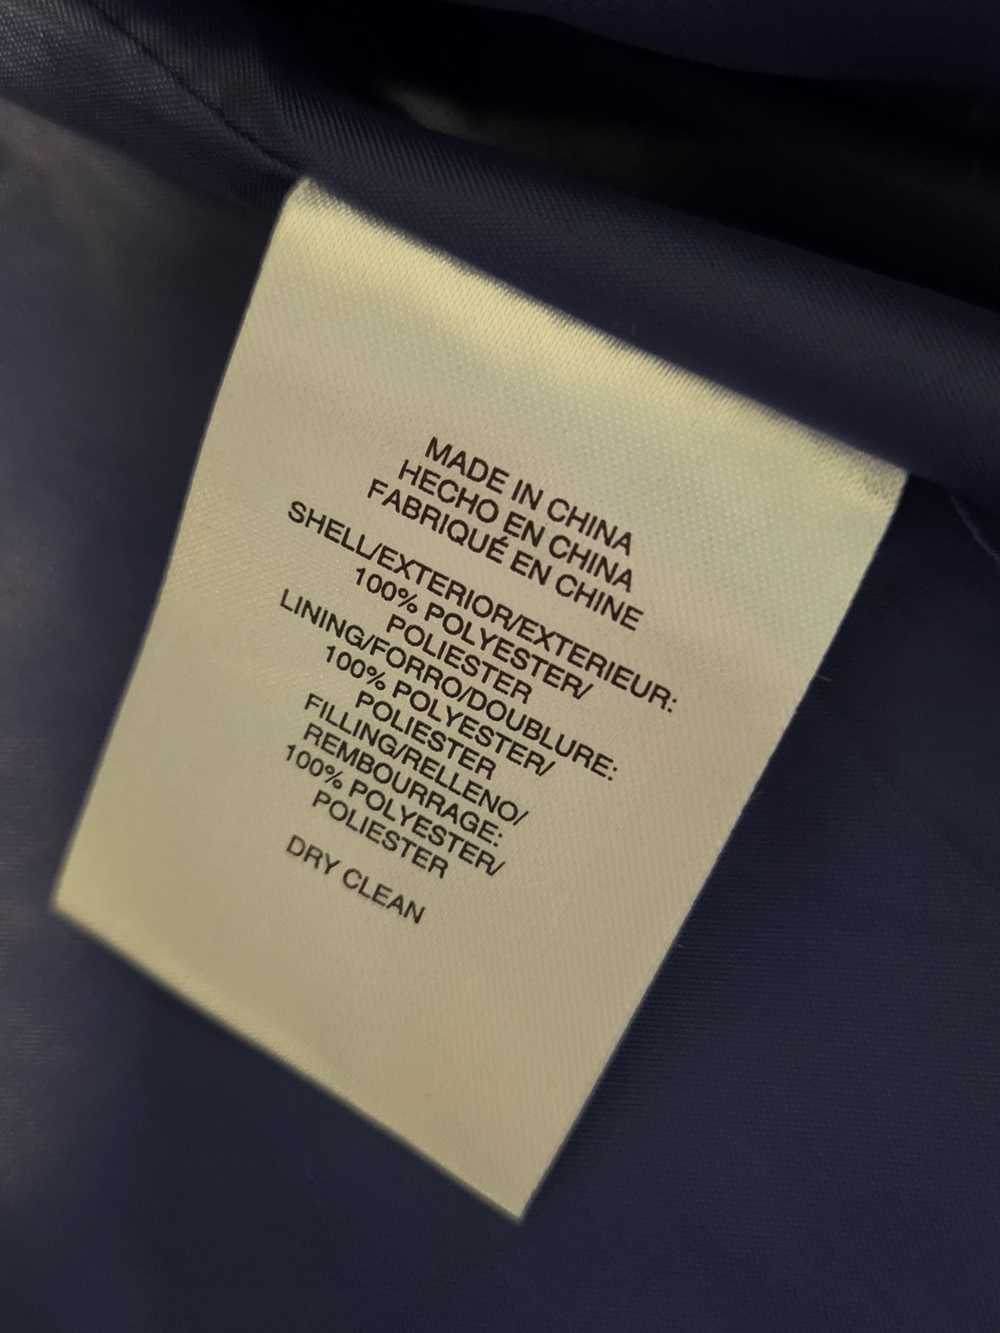 MADE IN CHINA
HECHO EN CHINA
FABRIQUÉ EN CHINE
SHELL/EXTERIOR/EXTERIEUR:
100% POLYESTER/
POLIESTER
LINING/FORRO/DOUBLURE:
100% POLYESTER/
POLIESTER
FILLING/RELLENO/
REMBOURRAGE:
100% POLYESTER/
POLIESTER
DRY CLEAN